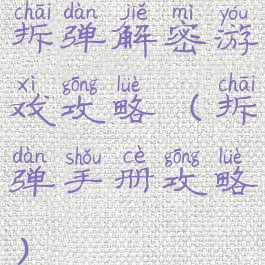 chāi dàn jiě mì yóu
拆弹解密游
xì gōng lüè chāi
戏攻略（拆
dàn shǒu cè gōng lüè
弹手册攻略
）